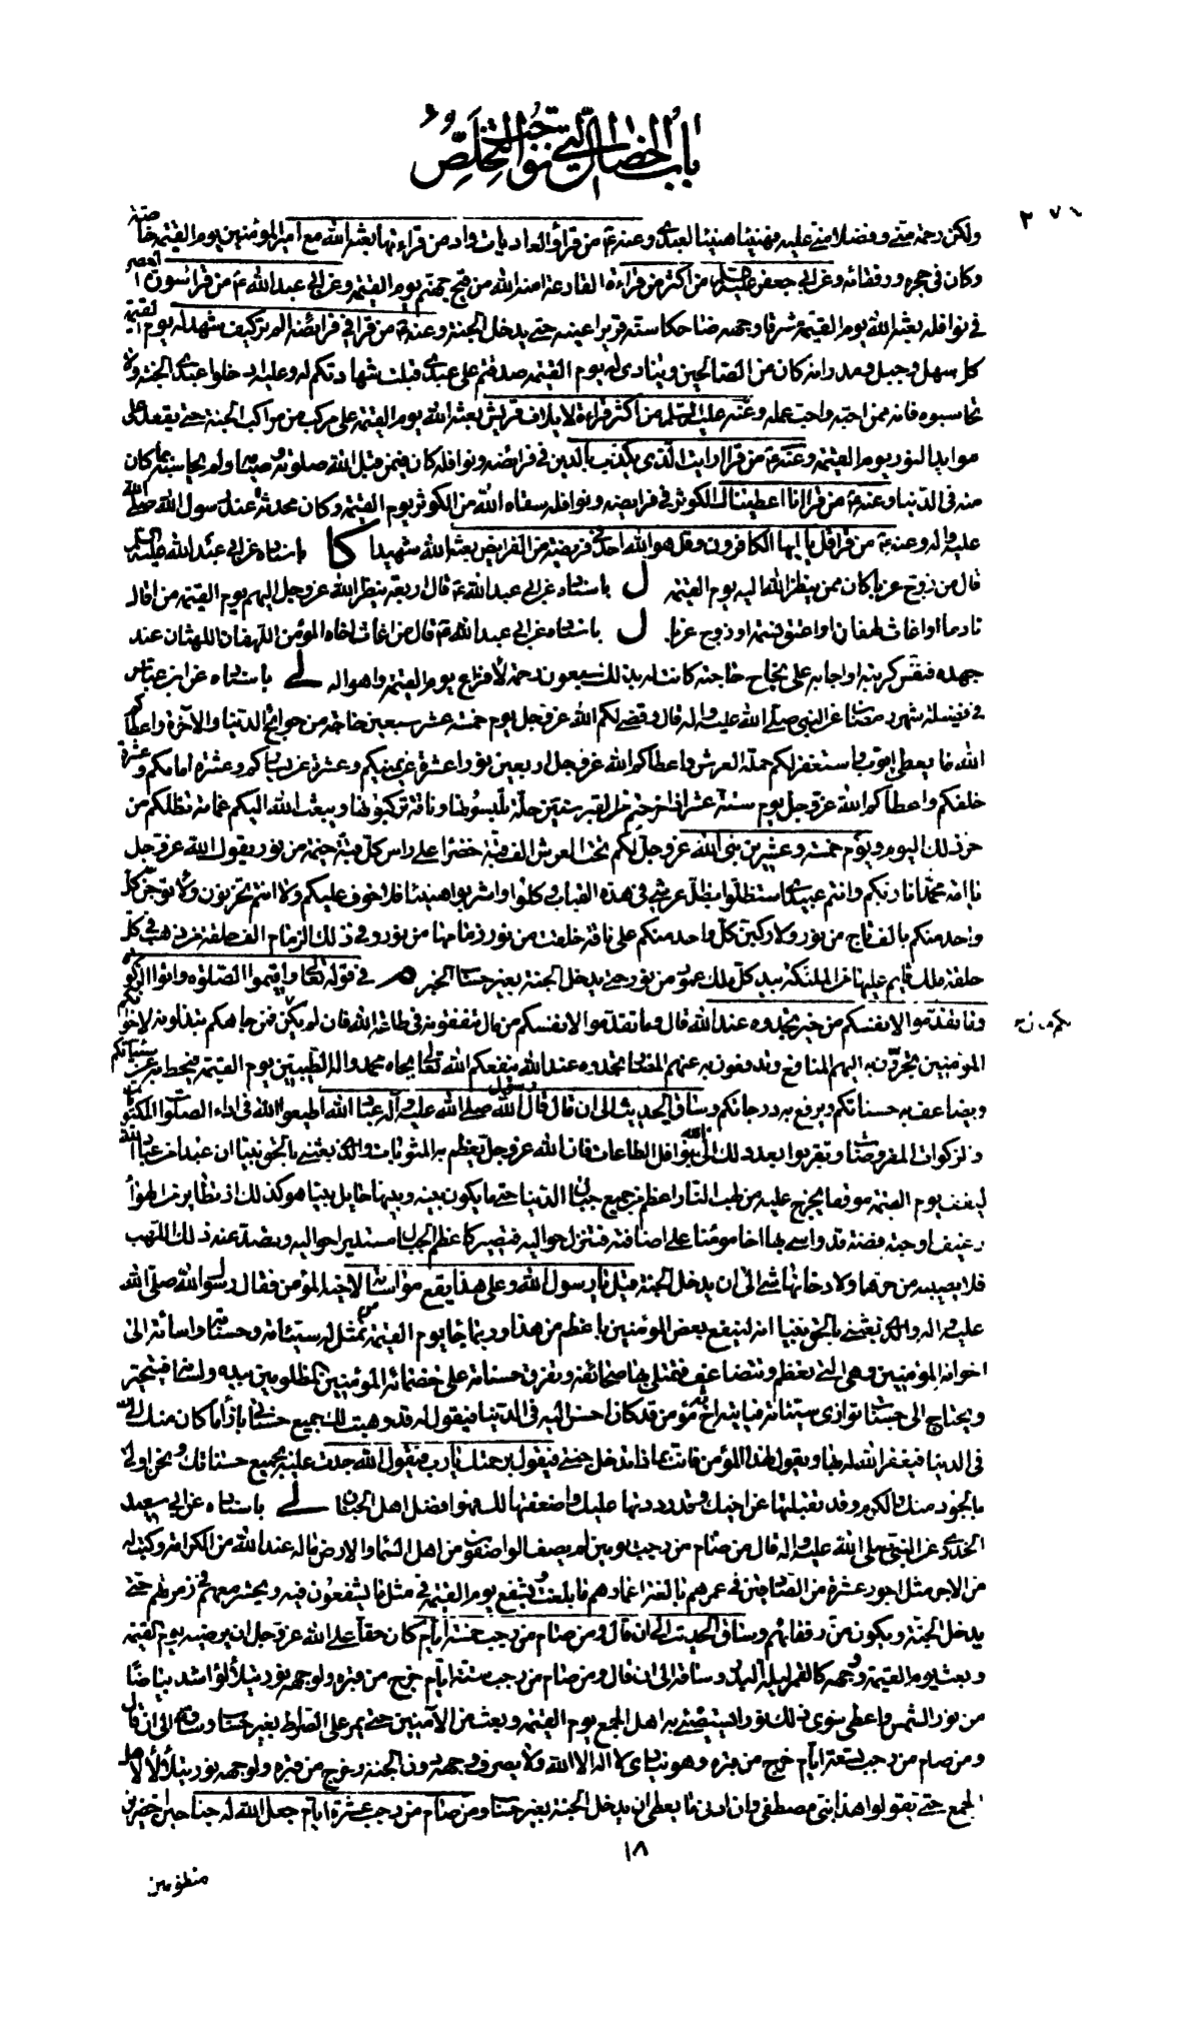 باب الخصال التي توجب التخلص
٢٧٦
ولكن رحمة مني وفضلا مني عليه فهنيئا هنيئا لعبدي وعنه ع من قرأ والعاديات وادمن قراءتها بعثه الله مع امير المؤمنين يوم القيمة خاصة
وكان في حجره ورفقائه وعن ابي جعفر عليه السلم من اكثر من قراءة القارعة امنه الله من فيح جهنم يوم القيمة وعن ابي عبد الله ع من قرأ سورة العصر
في نوافله بعثه الله يوم القيمة مشرقا وجهه ضاحكا سنه قريرا عينه حتى يدخل الجنة وعنه ع من قرأ في فرايضه الم تر كيف شهد له يوم القيمة
كل سهل وجبل ومدر انه كان من المصلين وينادى له يوم القيمة صدقتم على عبدي قبلت شهادتكم له وعليه ادخلوا عبدي الجنة ولا
تحاسبوه فانه ممن احبه واحب عمله وعنه عليه السلم من اكثر قراءة لايلاف قريش بعثه الله يوم القيمة على مركب من مراكب الجنة حتى يقعد على
موايد النور يوم القيمة وعنه ع من قرأ ارايت الذي يكذب بالدين في فرائضه ونوافله كان فيمن قبل الله صلوته وصيامه ولم يحاسبه بما كان
منه في الدنيا وعنه ع من قرأ انا اعطيناك الكوثر في فرايضه ونوافله سقاه الله من الكوثر يوم القيمة وكان محدثه عند رسول الله صلى الله
عليه واله وعنه ع من قرأ قل يا ايها الكافرون وقل هو الله احد في فريضة من الفرايض بعثه الله شهيدا كا باسناده عن ابي عبد الله عليه السلم
قال من زوج عزبا كان ممن ينظر الله اليه يوم القيمة ل باسناده عن ابي عبد الله ع قال اربعة ينظر الله عز وجل اليهم يوم القيمة من اقال
نادما او اغاث لهفان او اعتق نسمة او زوج عزبا ل باسناده عن ابي عبد الله ع قال من اغاث اخاه المؤمن اللهفان اللهثان عند
جهده فنفس كربته او اجابه على نجاح حاجته كانت له بذلك سبعون رحمة لافزاع يوم القيمة واهواله لي باسناده عن ابن عباس
في فضيلة شهر رمضان عن النبي صلى الله عليه واله قال وقضى لكم الله عز وجل يوم خمسة عشر سبعين حاجة من حوائج الدنيا والآخرة واعطاكم
الله ما يعطي ايوب واستغفر لكم حملة العرش واعطاكم الله عز وجل اربعين نورا عشرة عن يمينكم وعشرة عن يساركم وعشرة امامكم وعشرة
خلفكم واعطاكم الله عز وجل يوم ستة عشر اذا خرجتم من القبر ستين حلة تلبسونها وناقة تركبونها ويبعث الله اليكم غمامة تظلكم من
حر ذلك اليوم ويوم خمسة وعشرين بنى الله عز وجل لكم تحت العرش الف قبة خضرا على راس كل قبة خيمة من نور يقول الله عز وجل
يا امة محمد انا ربكم وانتم عبيدي استظلوا بظل عرشي في هذه القباب وكلوا واشربوا هنيئا فلا خوف عليكم ولا انتم تحزنون ولاتوجن كل
واحد منكم بالف تاج من نور ولاركبن كل واحد منكم على ناقة خلقت من نور زمامها من نور وفي ذلك الزمام الف حلقة من ذهب في كل
حلقة ملك قايم عليها من الملئكة بيد كل ملك عمود من نور حتى يدخل الجنة بغير حساب الخبر م في قوله تعالى واقيموا الصلوة واتوا الزكوة
وما تقدموا لانفسكم من خير تجدوه عند الله قال وما تقدموا لانفسكم من مال تنفقونه في طاعة الله فان لم يكن فمن جاهكم تبذلونه لاخوانكم
المؤمنين تجرون به اليهم المنافع وتدفعون به عنهم المضار تجدوه عند الله ينفعكم الله تعالى بجاه محمد واله الطيبين يوم القيمة فيحط به عن سيئاتكم
ويضاعف به حسناتكم ويرفع به درجاتكم وساق الحديث الى ان قال قال رسول الله صلى الله عليه وآله عباد الله اطيعوا الله في اداء الصلوات المكتوبات
والزكوات المفروضات وتقربوا بعد ذلك الى الله بنوافل الطاعات فان الله عز وجل يعظم به المثوبات والذي بعثني بالحق نبيا ان عبدا من عباد الله
ليقف يوم القيمة موقفا يخرج عليه من لهب النار اعظم من جميع جبال الدنيا حتى ما يكون بينه وبينها حايل بينا هو كذلك اذ تطاير من الهواء
رغيف او حبة فضة قد واسى بها اخا مؤمنا على اضافته فتنزل حواليه فتصير كاعظم الجبال مستديرا حواليه وتصد عنه ذلك اللهب
فلا يصيبه من حرها ولا دخانها شئ الى ان يدخل الجنة قيل يا رسول الله وعلى هذا يقع مواساته لاخيه المؤمن فقال رسول الله صلى الله
عليه واله والذي بعثني بالحق نبيا انه لينفع بعض المؤمنين باعظم من هذا وربما جاء يوم القيمة من تمثل له سيئاته وحسناته واساءته الى
اخوانه المؤمنين وهي التي تعظم وتتضاعف فتمتلئ بها صحائفه وتفرق حسناته على خصمائه المؤمنين المظلومين بيده ولسانه فيتحير
ويحتاج الى حسنات توازي سيئاته فياتيه اخ له مؤمن قد كان احسن اليه في الدنيا فيقول له قد وهبت لك جميع حسناتي بازاء ما كان منك الي
في الدنيا فيغفر الله له بها ويقول لهذا المؤمن فانت بماذا تدخل جنتي فيقول برحمتك يا رب فيقول الله جدت عليه بجميع حسناتك ونحن اولى
بالجود منك والكرم وقد تقبلتها عن اخيك وقد رددتها عليك واضعفتها لك فهو افضل اهل الجنان لي باسناده عن ابي سعيد
الخدري عن النبي صلى الله عليه واله قال من صام من رجب يومين لم يصف الواصفون من اهل السماء والارض ما له عند الله من الكرامة وكتب له
من الاجر مثل اجور عشرة من الصادقين في عمرهم بالغة اعمارهم ما بلغت ويشفع يوم القيمة في مثل ما يشفعون فيه ويحشر معهم في زمرتهم حتى
يدخل الجنة ويكون من رفقائهم وساق الحديث الى ان قال ومن صام من رجب خمسة ايام كان حقا على الله عز وجل ان يرضيه يوم القيمة
وبعث يوم القيمة ووجهه كالقمر ليلة البدر وساقه الى ان قال ومن صام من رجب ستة ايام خرج من قبره ولوجهه نور يتلألؤ اشد بياضا
من نور الشمس واعطي سوى ذلك نورا يستضئ به اهل الجمع يوم القيمة وبعث من الآمنين حتى يمر على الصراط بغير حساب وساقه الى ان قال
ومن صام من رجب تسعة ايام خرج من قبره وهو ينادي لا اله الا الله ولا يصرف وجهه دون الجنة وخرج من قبره ولوجهه نور يتلألأ لاهل
الجمع حتى يقولوا هذا نبي مصطفى وان ادنى ما يعطى ان يدخل الجنة بغير حساب ومن صام من رجب عشرة ايام جعل الله له جناحين اخضرين
١٨
منظومين